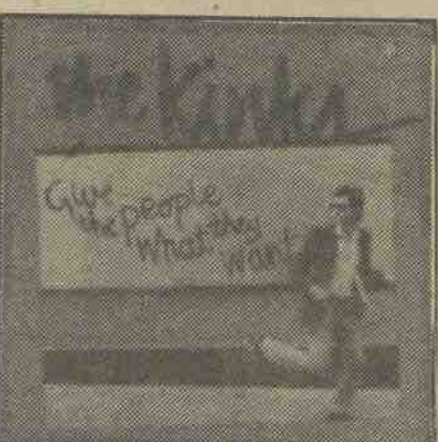 the Kinks
Give
the people
what they
want